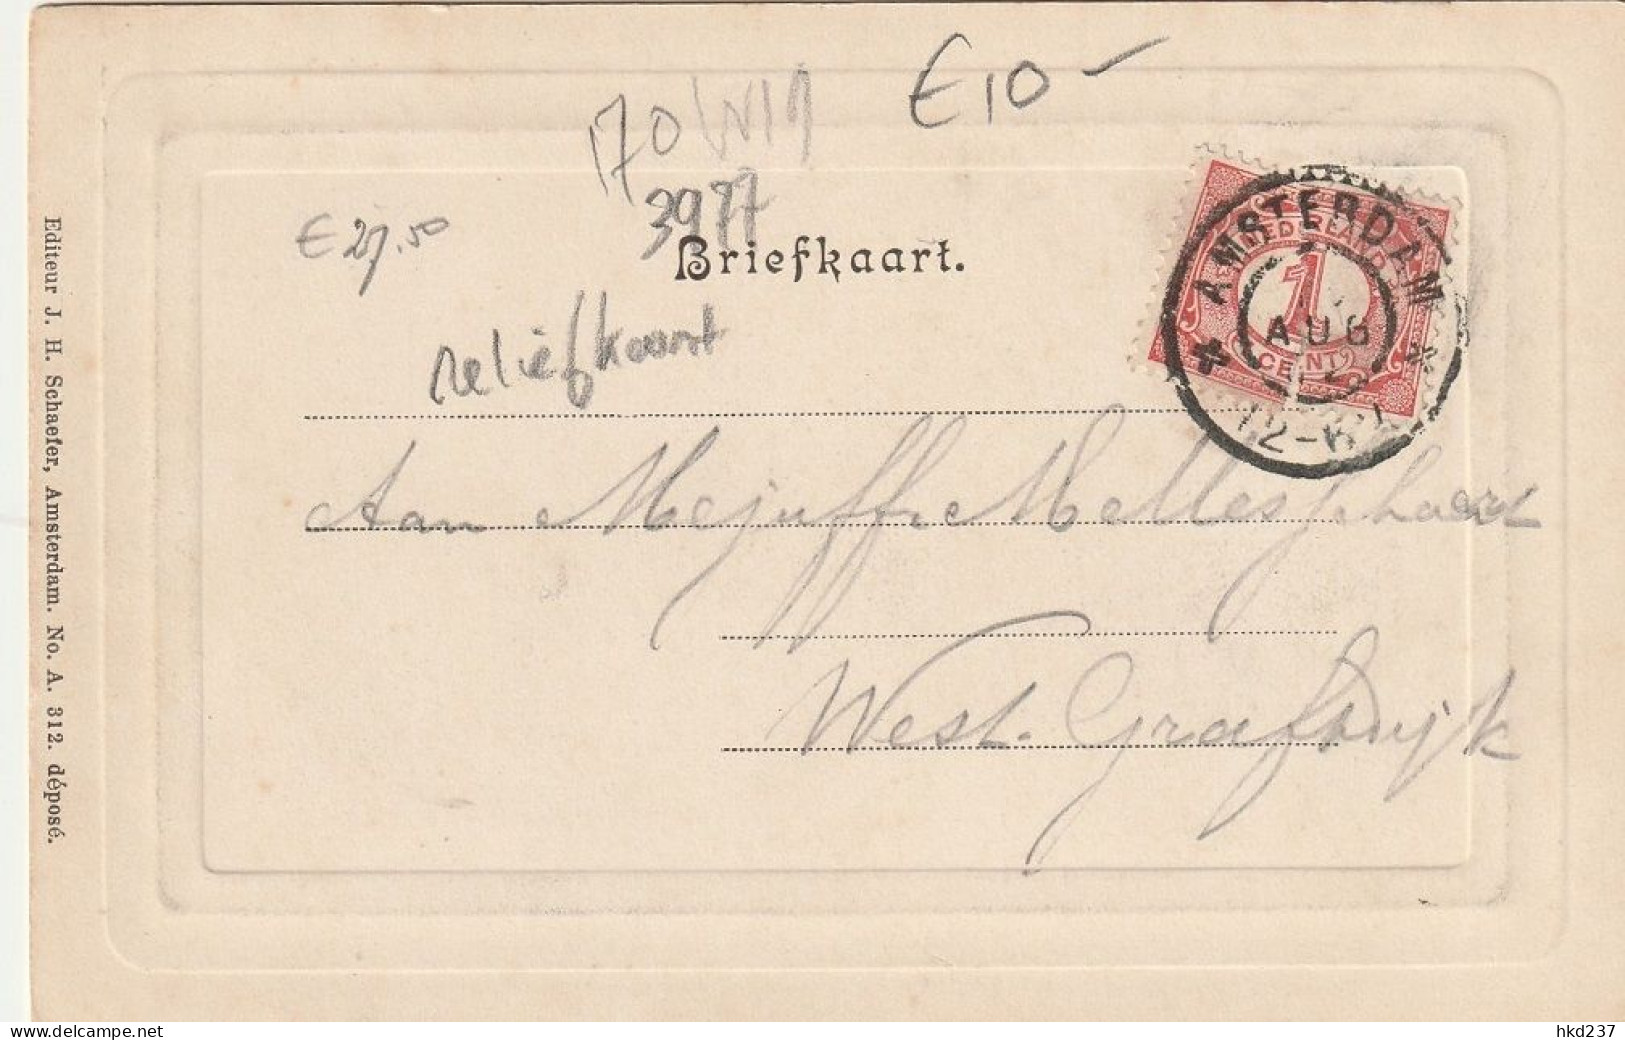 €10-
170
3977
€ 27.50
Briefkaart.
reliëfkaart
AMSTERDAM
NEDERLAND
1
CENT
AUG
12-
Aan Mejuffr Melles
West. Graftdijk
Editeur J. H. Schaefer, Amsterdam. No. A. 312. déposé.
hkd237